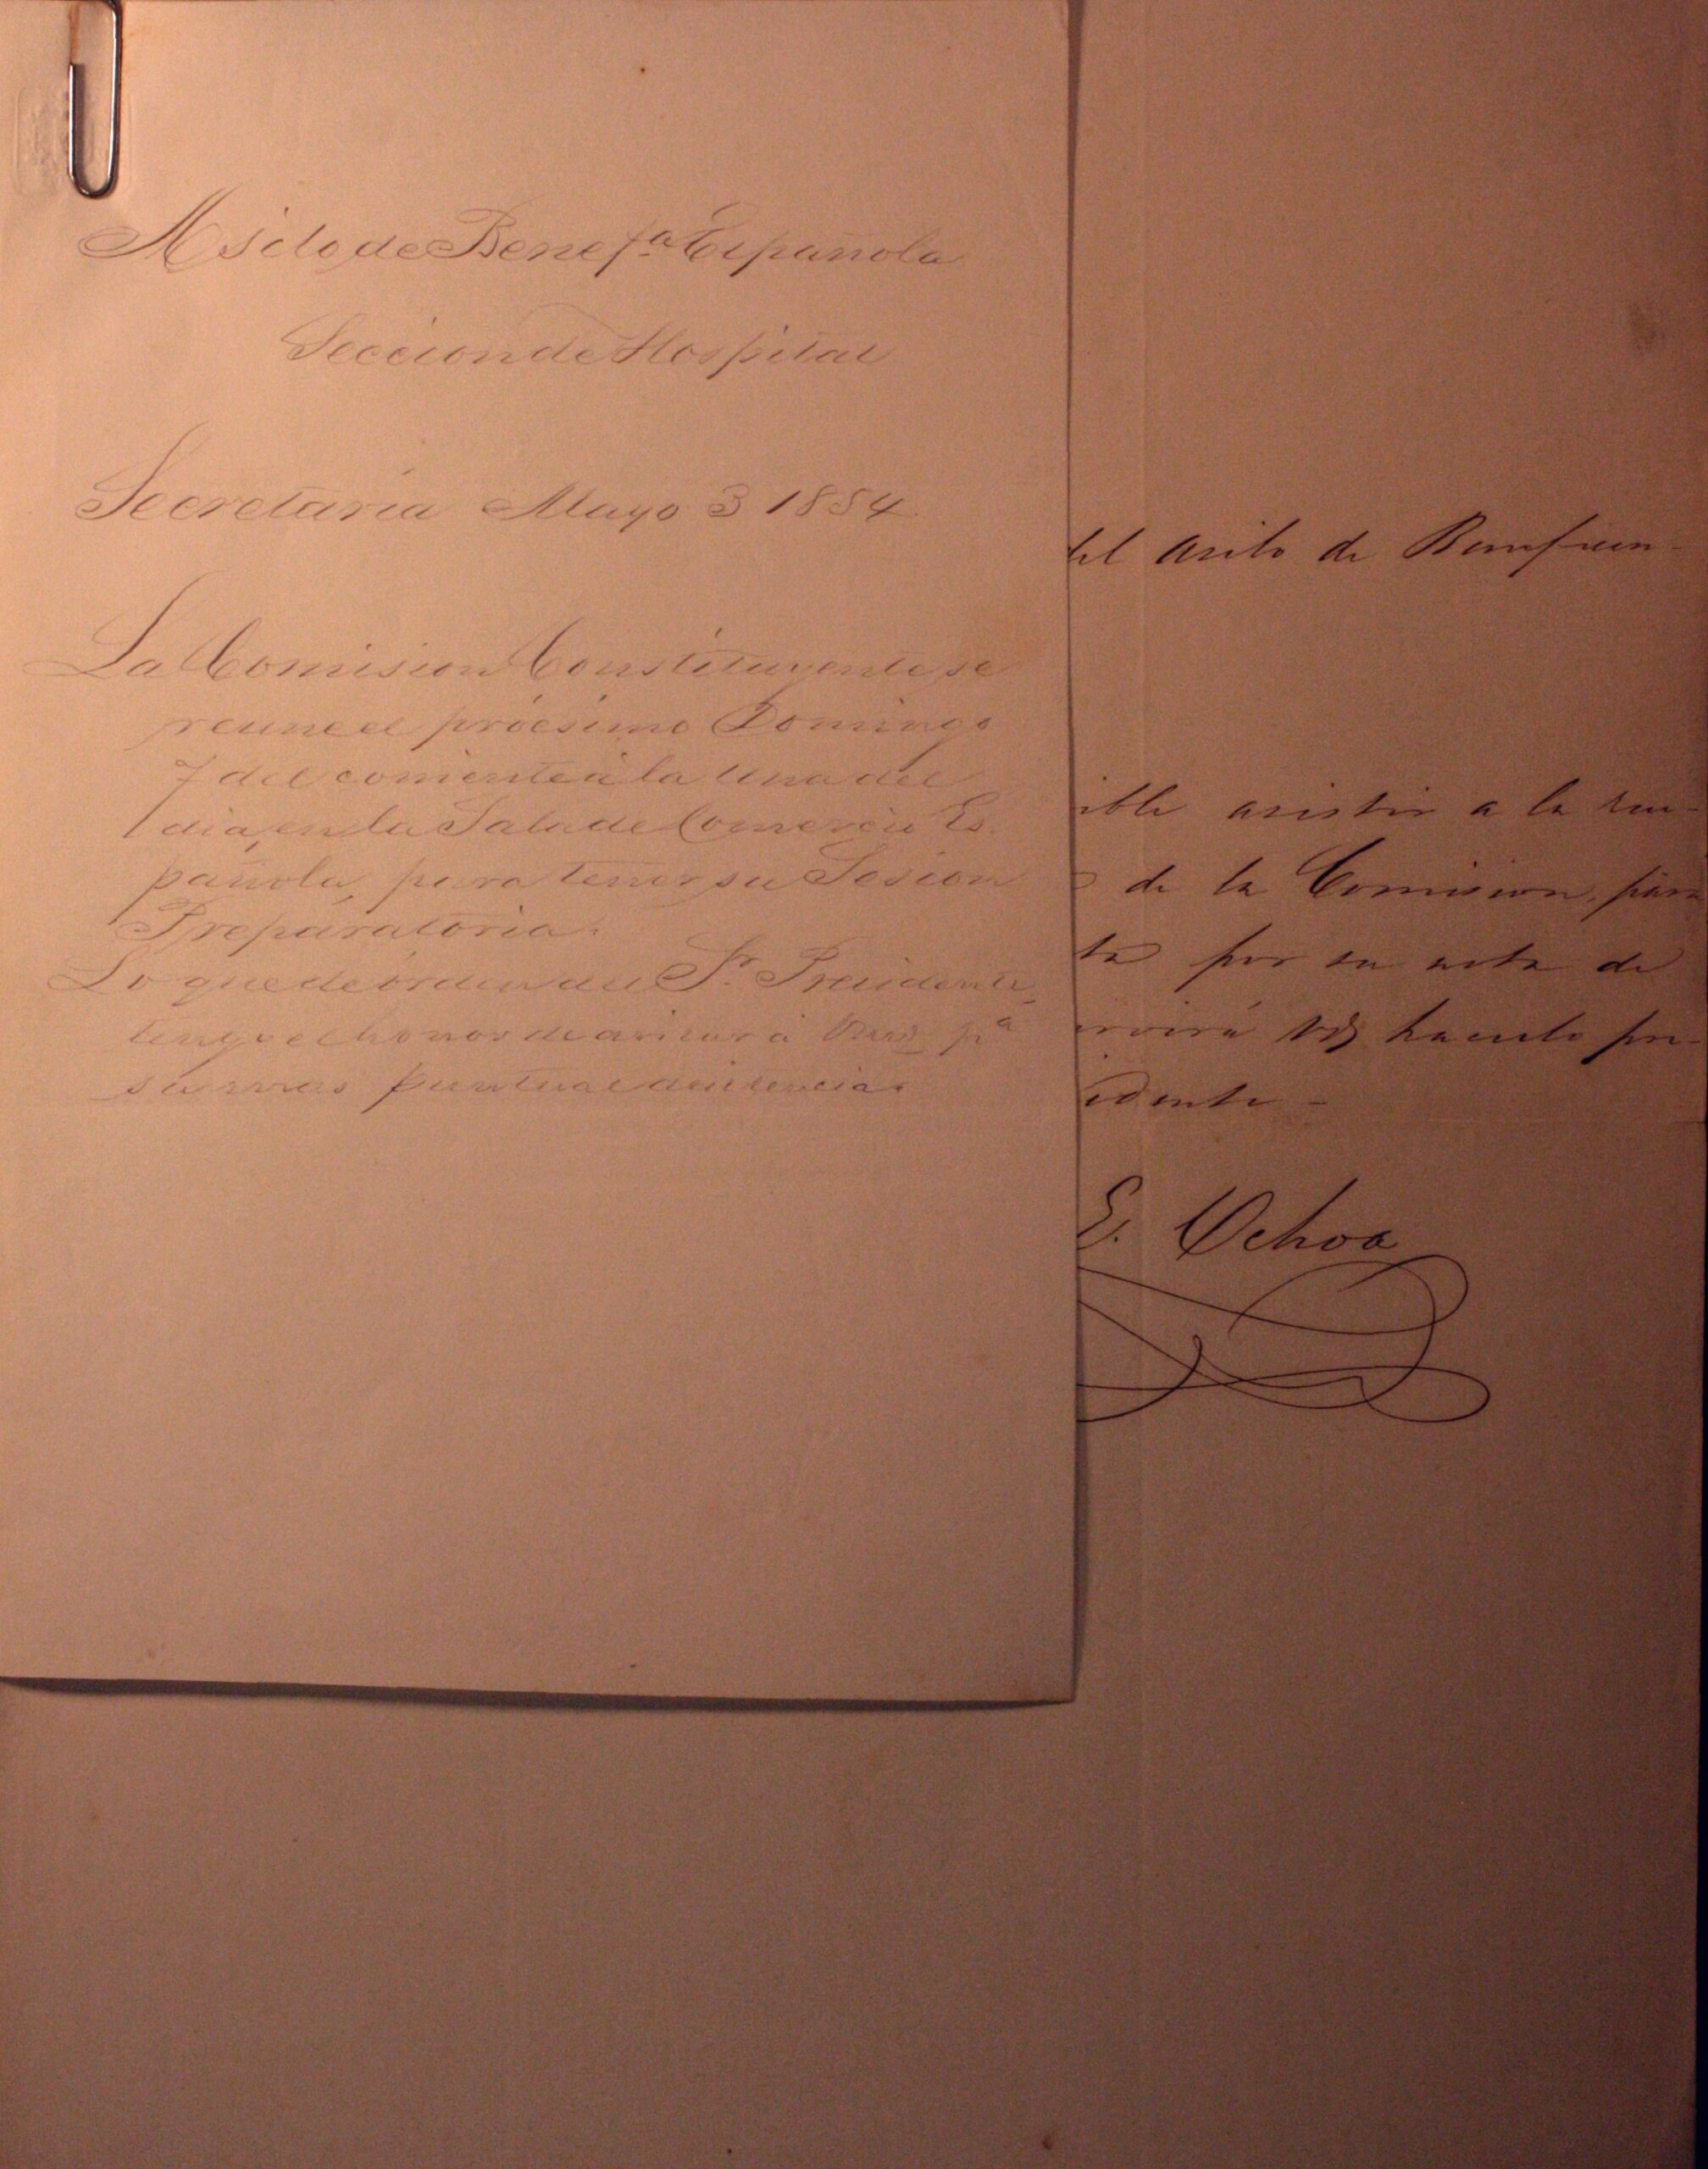 Asilo de Benef.ª Española
Seccion de Hospital
Secretaría Mayo 3 1854.
La Comision Constituyente se
reune el próesimo Domingo
7 del corriente á la una del
dia, en la Sala de Comercio Es-
pañola, para tener su Sesion
Preparatoria.
Lo que de órden del Sr. Presidente,
tengo el honor de avisar á pª
su mas puntual asistencia.
del asilo de Beneficen-
ible asistir a la reu-
de la Comision, para
ta por su nota de
ervirá Vds hacerlo pre-
idente -
E. Ochoa